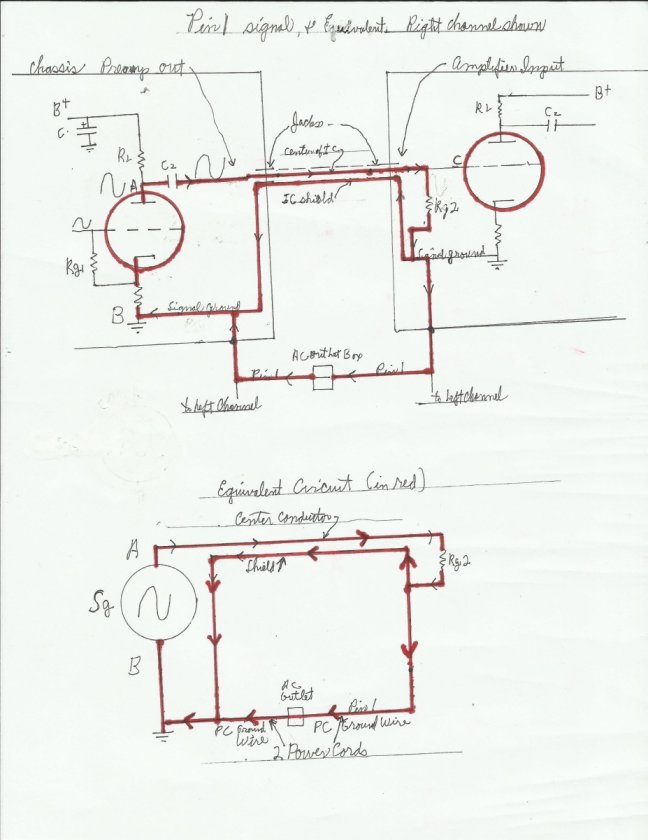 Pin 1 signal, & Equivalent. Right channel shown
Chassis Preamp out
Amplifier Input
B+
B+
C
RL
C2
RL
C2
Jacks
Center of IC
IC shield
A
C
Rg1
Rg2
Signal ground
Signal ground
B
AC outlet Box
Pin 1
Pin 1
to Left Channel
to Left Channel
Equivalent Circuit (in red)
Center Conductor
A
Shield
Rg2
Sg
B
AC
Outlet
Pin 1
PC Ground
Wire
PC Ground Wire
2 Power Cords